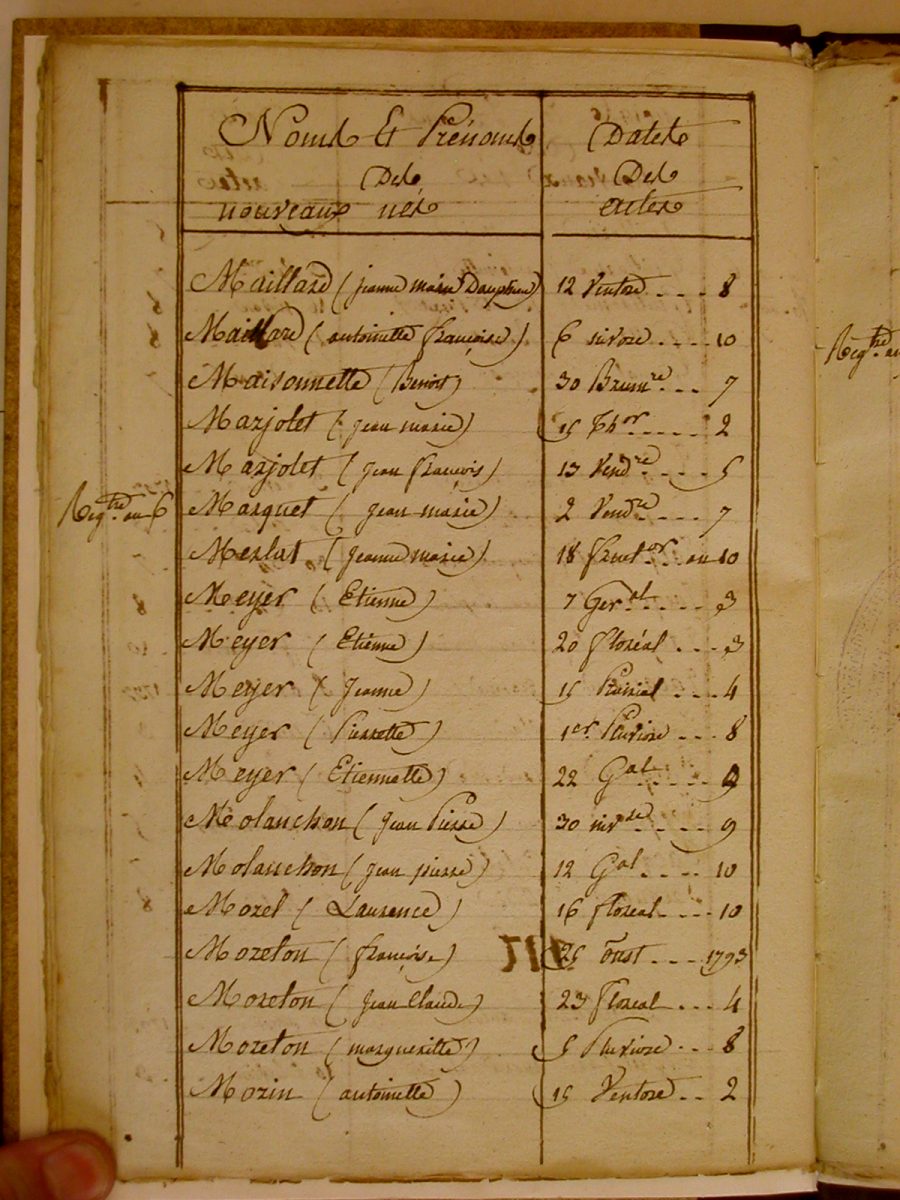 Noms Et Prénoms
Des
nouveaux nés
Dates
Des
actes
Maillard (jeanne marie Dauphine) 12 Ventose .... 8
Maillard (antoinette françoise) 6 nivose .... 10
Maisonnette (Benoit) 30 Brumre ... 7
Marjolet (jean marie) 15 Thor ..... 2
Marjolet (jean françois) 13 Vendre .... 5
Regtre an 6 Marquet (jean marie) 2 Vendre .... 7
Merlat (jeanne marie) 18 fructor .. an 10
Meyer (Etienne) 7 Geral ..... 3
Meyer (Etienne) 20 floréal ... 3
Meyer (Jeanne) 15 Prairial .... 4
Meyer (Pierrette) 1er Pluviose ... 8
Meyer (Etiennette) 22 Gal ..... 9
Molanchon (jean Pierre) 30 nivse ..... 9
Molanchon (jean pierre) 12 Gal .... 10
Morel (Laurence) 16 floréal .... 10
Moreton (françoise) 25 Oust ... 1793
Moreton (jean Claude) 23 floréal ... 4
Moreton (margueritte) 5 Pluviose .. 8
Morin (antoinette) 15 Ventose .. 2
Regtre an